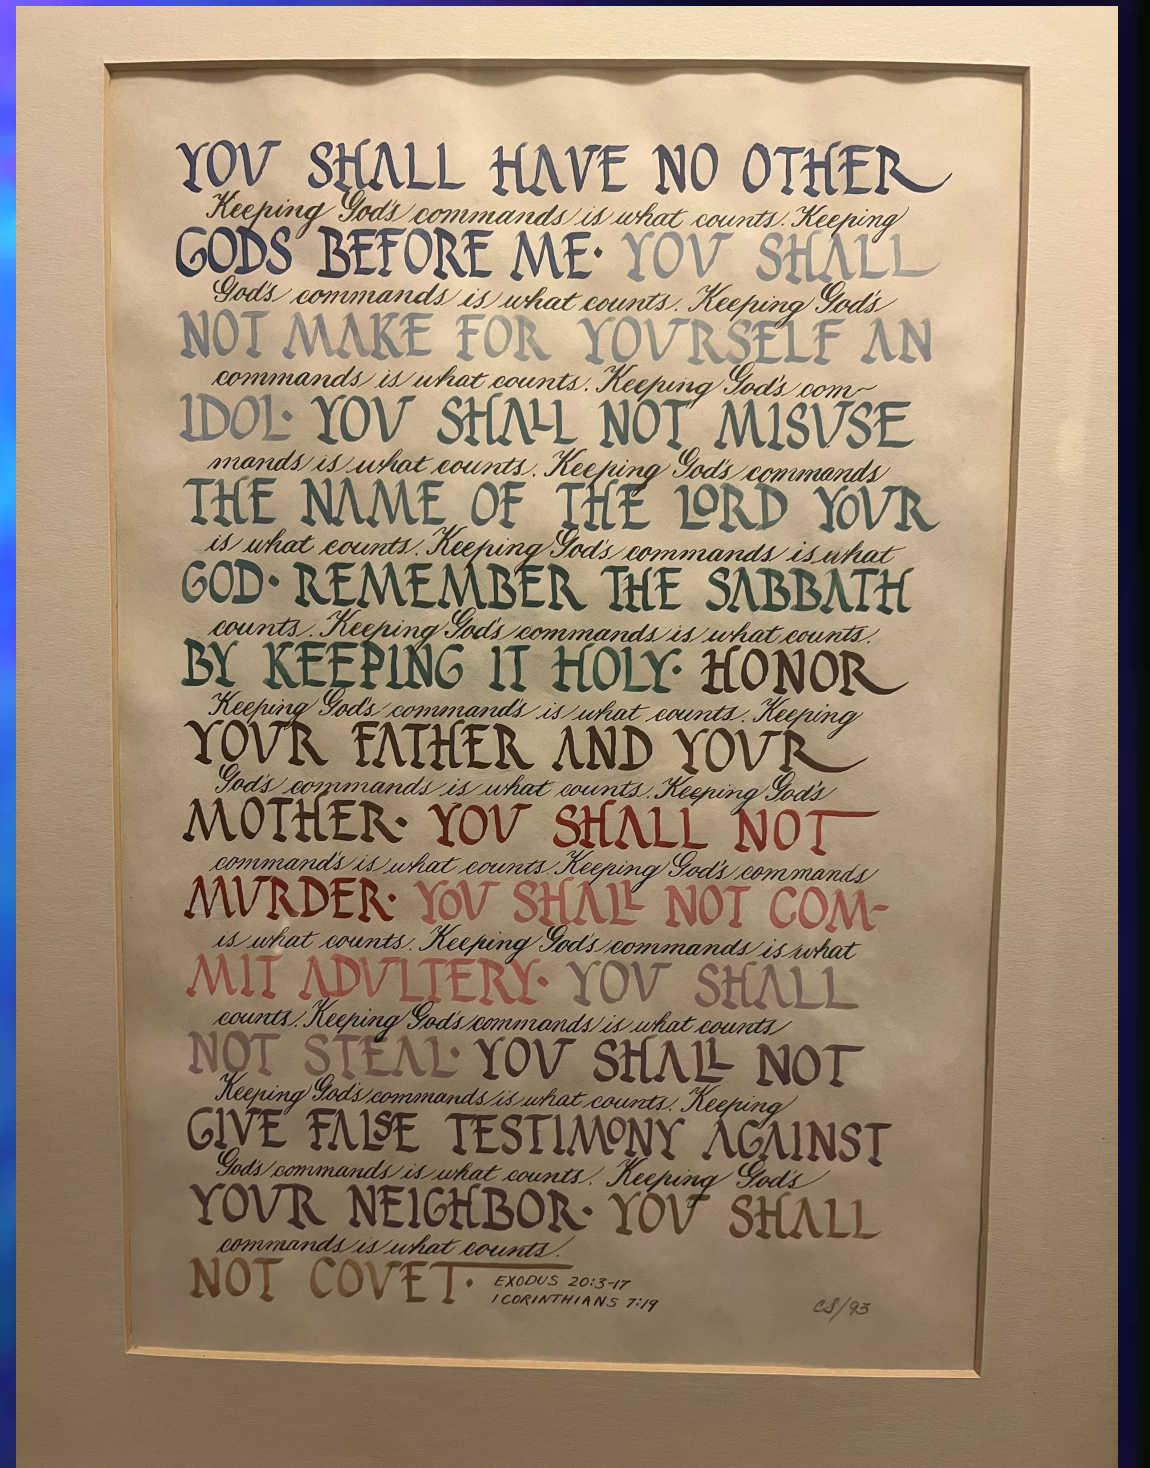 YOU SHALL HAVE NO OTHER
Keeping God's commands is what counts. Keeping
GODS BEFORE ME· YOU SHALL
God's commands is what counts. Keeping God's
NOT MAKE FOR YOURSELF AN
commands is what counts. Keeping God's com~
IDOL· YOU SHALL NOT MISUSE
mands is what counts. Keeping God's commands
THE NAME OF THE LORD YOUR
is what counts. Keeping God's commands is what
GOD· REMEMBER THE SABBATH
counts. Keeping God's commands is what counts.
BY KEEPING IT HOLY· HONOR
Keeping God's command's is what counts. Keeping
YOUR FATHER AND YOUR
God's commands is what counts. Keeping God's
MOTHER· YOU SHALL NOT
command's is what counts. Keeping God's commands
MURDER· YOU SHALL NOT COM-
is what counts. Keeping God's commands is what
MIT ADULTERY· YOU SHALL
counts. Keeping God's commands is what counts
NOT STEAL· YOU SHALL NOT
Keeping God's commands is what counts. Keeping
GIVE FALSE TESTIMONY AGAINST
God's commands is what counts. Keeping God's
YOUR NEIGHBOR· YOU SHALL
commands is what counts.
NOT COVET·
EXODUS 20:3-17
1 CORINTHIANS 7:19
CS/93